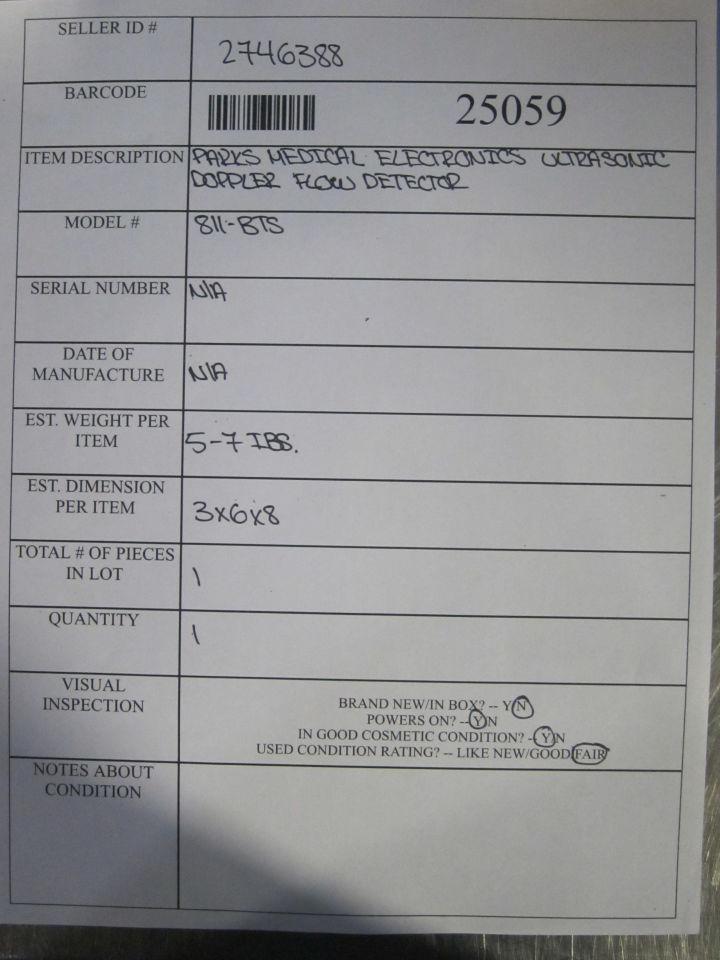 SELLER ID #
2746388
BARCODE
25059
ITEM DESCRIPTION
PARKS MEDICAL ELECTRONICS ULTRASONIC
DOPPLER FLOW DETECTOR
MODEL #
811-BTS
SERIAL NUMBER
N/A
DATE OF
MANUFACTURE
N/A
EST. WEIGHT PER
ITEM
5-7 IBS.
EST. DIMENSION
PER ITEM
3x6x8
TOTAL # OF PIECES
IN LOT
1
QUANTITY
1
VISUAL
INSPECTION
BRAND NEW/IN BOX? -- Y/N
POWERS ON? --Y/N
IN GOOD COSMETIC CONDITION? --Y/N
USED CONDITION RATING? -- LIKE NEW/GOOD/FAIR
NOTES ABOUT
CONDITION